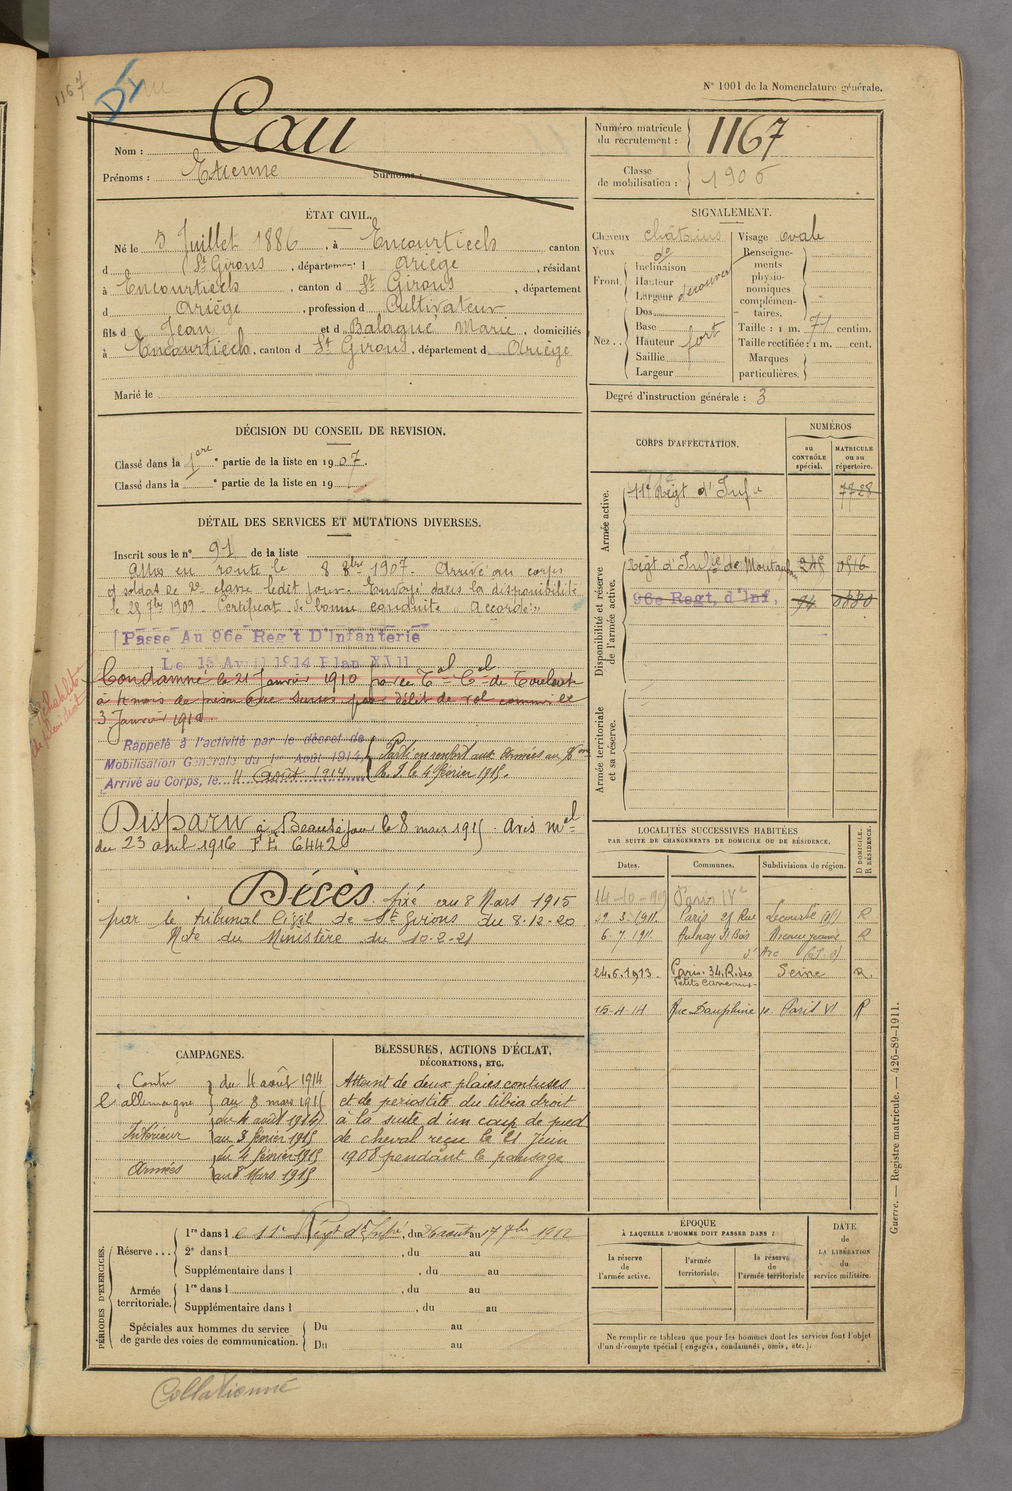 1167
N° 1001 de la Nomenclature générale.
Nom : Cau
Prénoms : Etienne Surnoms :
Numéro matricule du recrutement : 1167
Classe de mobilisation : 1906
ÉTAT CIVIL.
Né le 5 Juillet 1886, à Encourtiech canton
d St Girons, département d Ariège, résidant
à Encourtiech, canton d St Girons, département
d Ariège, profession d Cultivateur
fils d Jean et d Balagué Marie, domiciliés
à Encourtiech, canton d St Girons, département d Ariège
Marié le
SIGNALEMENT.
Cheveux châtains
Yeux do
Front Inclinaison
Hauteur
Largeur découvert
Nez Dos
Base
Hauteur fort
Saillie
Largeur
Visage ovale
Renseignements physionomiques complémentaires.
Taille : 1 m. 71 centim.
Taille rectifiée : 1 m. cent.
Marques particulières.
Degré d'instruction générale : 3
DÉCISION DU CONSEIL DE REVISION.
Classé dans la 1ere partie de la liste en 1907.
Classé dans la e partie de la liste en 19
DÉTAIL DES SERVICES ET MUTATIONS DIVERSES.
Inscrit sous le n° 91 de la liste
Mis en route le 8 8bre 1907. Arrivé au corps
et soldat de 2e classe ledit jour. Envoyé dans la disponibilité
le 28 7bre 1909. Certificat de bonne conduite "Accordé"
Passé Au 96e Reg't D'Infanterie
Le 15 Avril 1914 Plan XVII
Condamné le 21 Janvier 1910 par le Tal Cel de Toulouse
à mois de prison avec sursis pour délit de vol commis le
3 Janvier 1910
Rappelé à l'activité par le décret de
Mobilisation Générale du 1er Août 1914,
Arrivé au Corps, le 4 août 1914
Parti en renfort aux Armées au
le 4 février 1915.
Disparu à Beauséjour le 8 mars 1915. Avis mel
du 23 avril 1916 FE 6442
Décès fixé au 8 Mars 1915
par le tribunal Civil de St Girons du 8-12-20
Note du Ministère du 10-2-21
CORPS D'AFFECTATION.
NUMÉROS
au CONTRÔLE spécial.
MATRICULE ou au répertoire.
Armée active.
11e Régt d'Infie 7728
Disponibilité et réserve de l'armée active.
Régt d'Infie de Montauban 248 0816
96e Regt, d'Inf, 94 0880
Armée territoriale et sa réserve.
LOCALITÉS SUCCESSIVES HABITÉES
PAR SUITE DE CHANGEMENTS DE DOMICILE OU DE RÉSIDENCE.
D DOMICILE. R RÉSIDENCE.
Dates. Communes. Subdivisions de région.
14-10-1909 Paris IVe
12-3-1911. Paris 21 Rue Lecourbe R
6-7-1911. Aulnay s Bois Avenue Jeanne R
d'Arc (S.O)
24.6.1913. Paris. 34. R. des Petits Carreaux Seine R.
15-4-14 Rue Dauphine Paris VI R
CAMPAGNES.
Contre l'allemagne du 4 août 1914
au 8 mars 1915
Intérieur du 4 août 1914
au 3 février 1915
Armées du 4 février 1915
au 8 Mars 1915
BLESSURES, ACTIONS D'ÉCLAT,
DÉCORATIONS, ETC.
Atteint de deux plaies contuses
et de periostite du tibia droit
à la suite d'un coup de pied
de cheval reçu le 21 Juin
1908 pendant le pansage
PÉRIODES D'EXERCICES.
Réserve... 1re dans l e 11e Régt d'Infie, du 26 août au 17 7bre 1912
2e dans l , du au
Supplémentaire dans l , du au
Armée territoriale. 1re dans l , du au
Supplémentaire dans l , du au
Spéciales aux hommes du service de garde des voies de communication. Du au
Du au
ÉPOQUE
À LAQUELLE L'HOMME DOIT PASSER DANS :
la réserve de l'armée active.
l'armée territoriale.
la réserve de l'armée territoriale
DATE de LA LIBÉRATION du service militaire.
Ne remplir ce tableau que pour les hommes dont les services font l'objet
d'un décompte spécial (engagés, condamnés, omis, etc.).
Guerre. — Registre matricule. — 426-89-1911.
Collationné